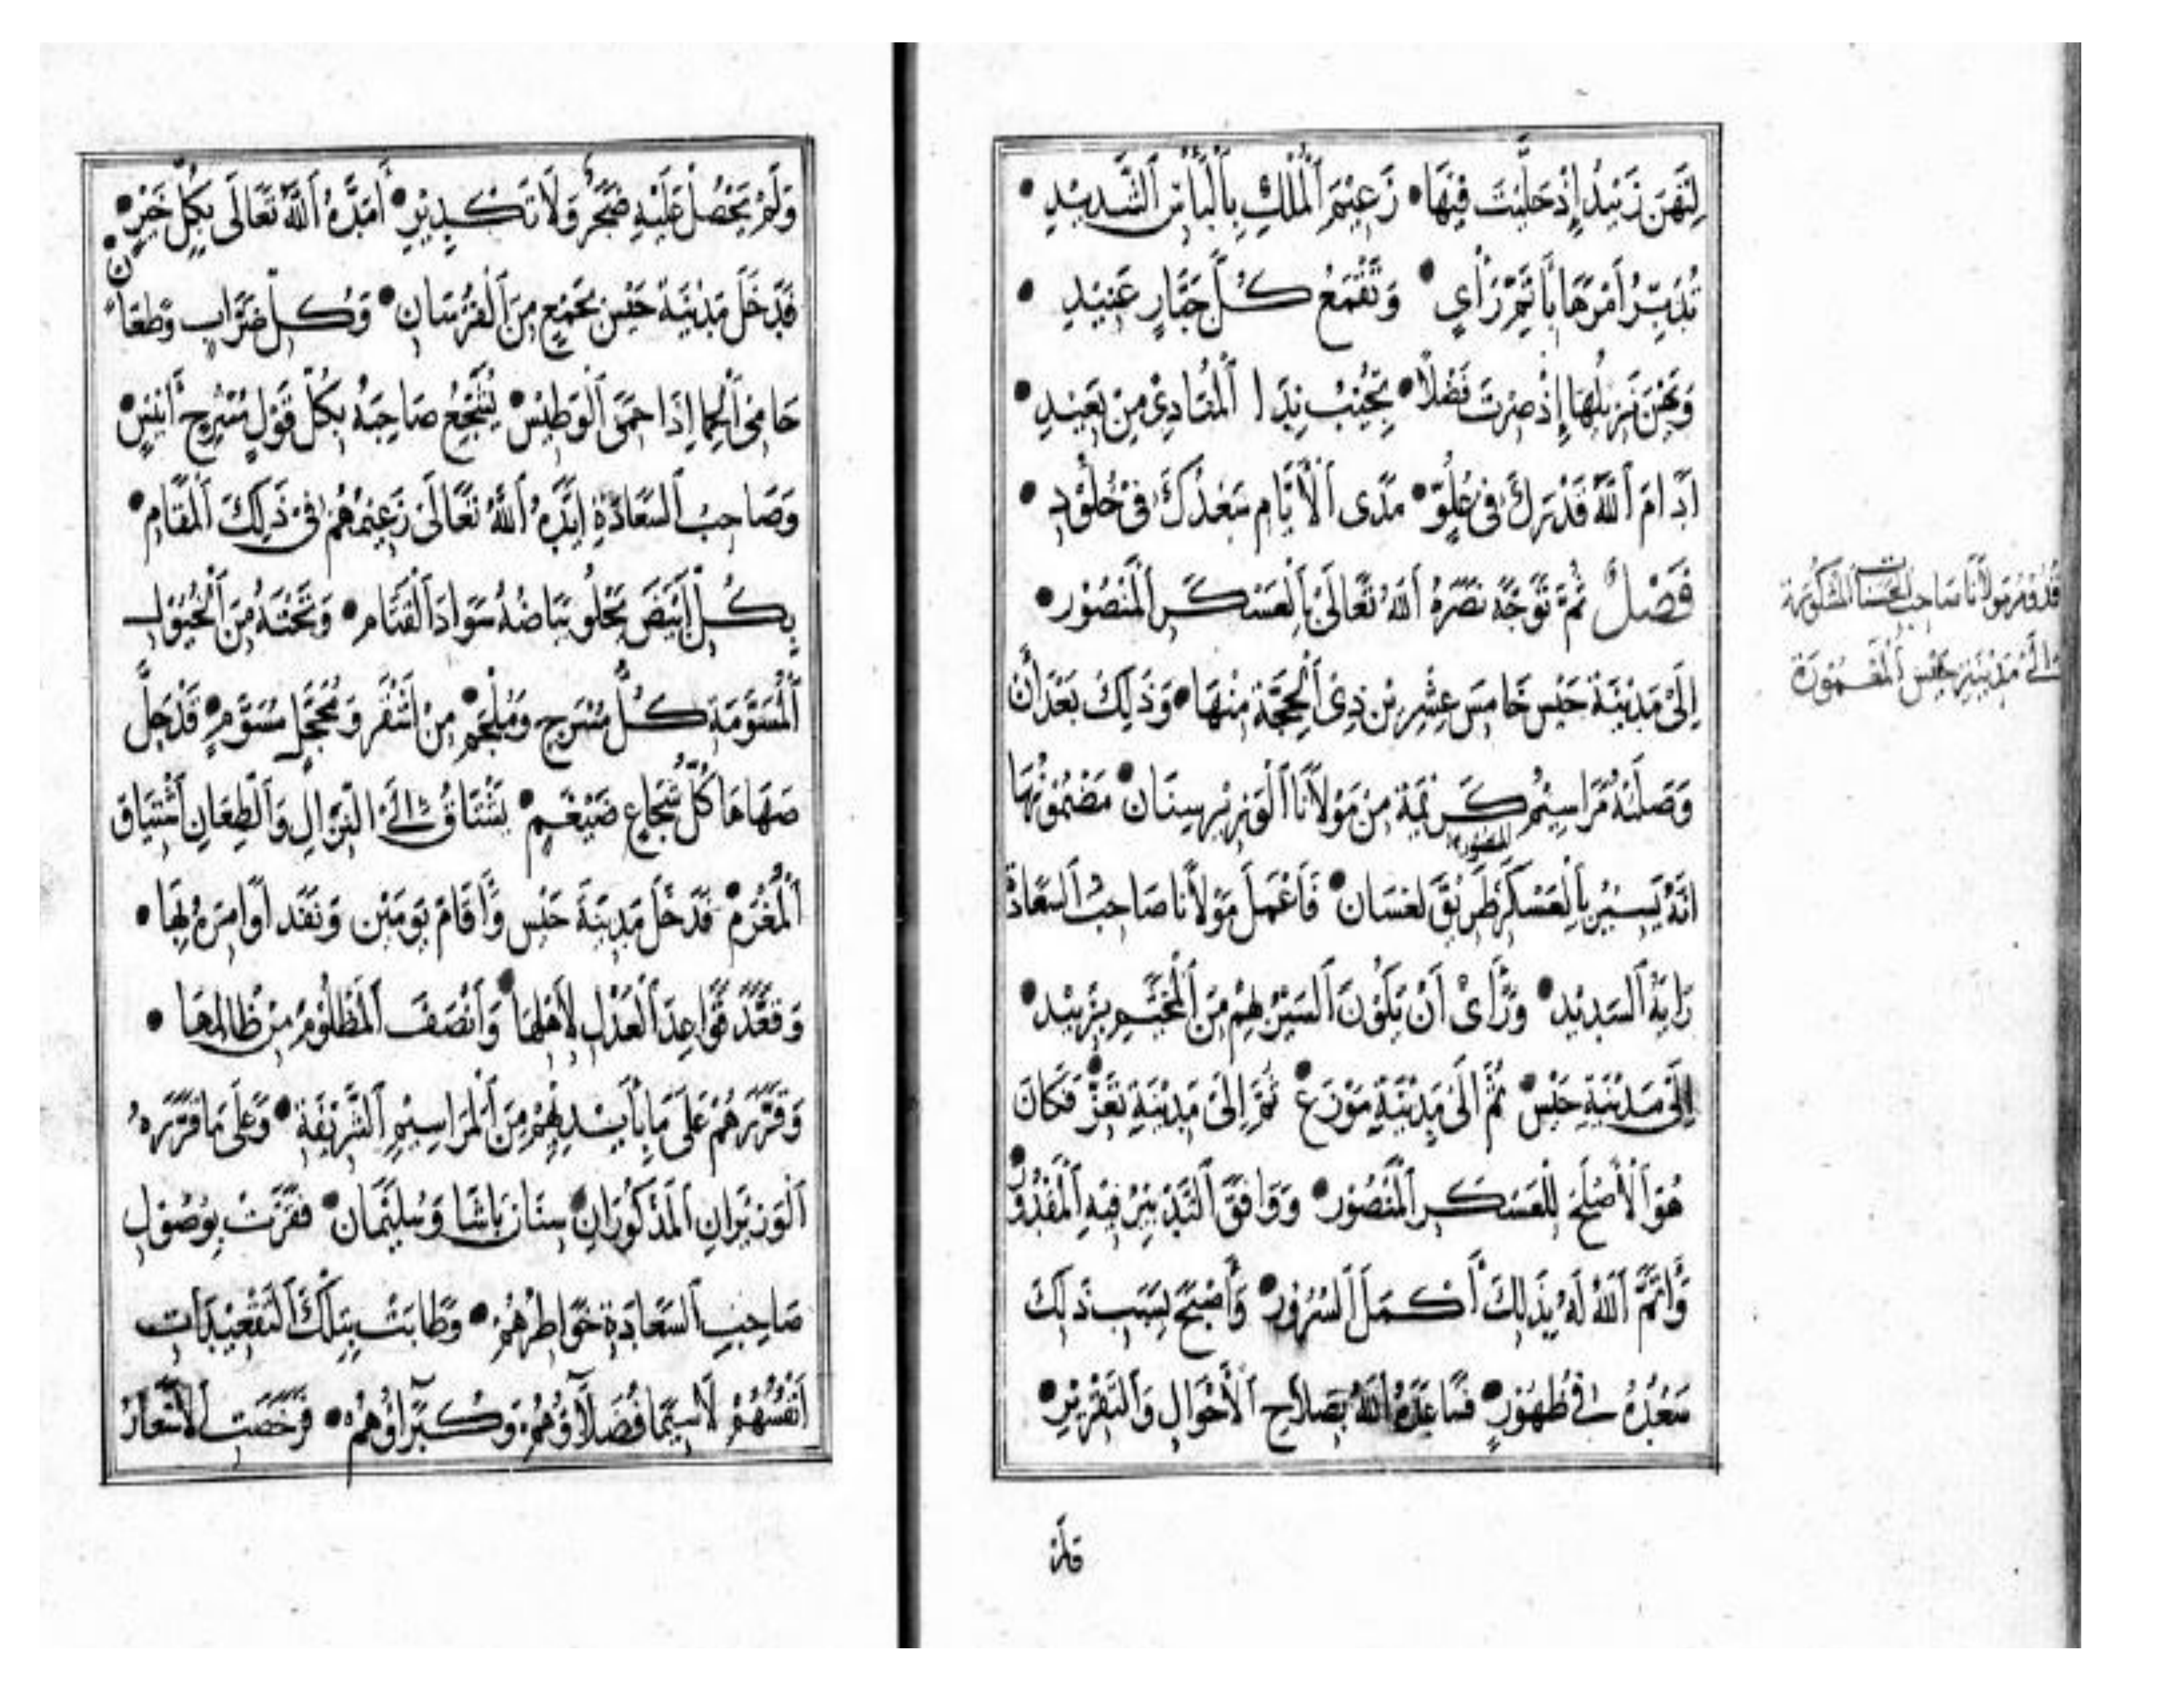 لِتَهْنَ زَبِيدُ إِذْ حَلَيْتَ فِيهَا • زَعِيمَ الْمُلْكِ بِالْبَأْسِ الشَّدِيدِ •
تُدَبِّرُ أَمْرَهَا بِأَتَمِّ رَأْيٍ • وَتَقْمَعُ كُلَّ جَبَّارٍ عَنِيدِ •
إِذْ صِرْتَ فَضْلًا • تُجِيبُ نِدَا الْمُنَادِي مِنْ بَعِيدِ •
أَدَامَ اللَّهُ قَدْرَكَ فِي عُلُوٍّ • مَدَى الْأَيَّامِ سَعْدُكَ فِي خُلُودِ •
فَصْلٌ ثُمَّ تَوَجَّهَ نَصَرَهُ اللَّهُ تَعَالَى بِالْعَسْكَرِ الْمَنْصُورِ •
إِلَى مَدِينَةِ حَيْسَ خَامِسَ عِشْرِينَ ذِي الْحِجَّةِ مِنْهَا • وَذَلِكَ بَعْدَ أَنْ
وَصَلَتْهُ مَرَاسِيمُ كَرِيمَةٌ مِنْ مَوْلَانَا الْوَزِيرِ سِنَان • مَضْمُونُهَا
أَنَّهُ يَسِيرُ بِالْعَسْكَرِ الْمَنْصُورَةِ طَرِيقَ لعسَان • فَأَعْمَلَ مَوْلَانَا صَاحِبُ السَّعَادَةِ
رَايَهُ السَّدِيد • وَرَأَى أَنْ يَكُونَ السَّيْرُ بِهِمْ مِنَ الْمُخَيَّمِ بِزَبِيد •
إِلَى مَدِينَةِ حَيْس • ثُمَّ إِلَى مَدِينَةِ مَوْزَع • ثُمَّ إِلَى مَدِينَةِ تَعِزّ • فَكَانَ
هُوَ الْأَصْلَحَ لِلْعَسْكَرِ الْمَنْصُور • وَوَافَقَ التَّدْبِيرُ فِيهِ الْمَقْدُورَ •
وَأَتَمَّ اللَّهُ لَهُ بِذَلِكَ أَكْمَلَ السُّرُور • وَأَصْبَحَ بِسَبَبِ ذَلِكَ
سَعْدُهُ فِي ظُهُورٍ • فَسَاعَدَهُ اللَّهُ بِصَلَاحِ الْأَحْوَالِ وَالتَّقْرِيرِ •
وَلَمْ
قدوم مولانا صاحب السعادة
إلى مدينة حيس المعمورة
وَلَمْ يَحْصُلْ عَلَيْهِ ضَجَرٌ وَلَا تَكْدِيرٍ • أَمَدَّهُ اللَّهُ تَعَالَى بِكُلِّ خَيْرٍ •
فَدَخَلَ مَدِينَةَ حَيْسَ بِجَمِيعٍ مِنَ الْفُرْسَانِ • وَكُلِّ ضَرَّابٍ وَطَعَّانٍ
حَامِي الْحِمَا إِذَا حَمِيَ الْوَطِيسُ • يُشَجِّعُ صَاحِبَهُ بِكُلِّ قَوْلٍ أَنِيسٍ •
وَصَاحِبُ السَّعَادَةِ أَيَّدَهُ اللَّهُ تَعَالَى زَعِيمُهُمْ فِي ذَلِكَ الْمَقَامِ •
بِكُلِّ أَبْيَضَ يَجْلُو بَيَاضُهُ سَوَادَ الْقَتَامِ • وَتَحْتَهُ مِنَ الْخُيُولِ
الْمُسَوَّمَةِ كُلُّ مُسْرَجٍ وَمُلْجَمٍ • مِنْ أَشْقَرَ وَمُحَجَّلٍ مُسَوَّمٍ • قَدْ حَلَّ
صَهَاهَا كُلُّ شُجَاعٍ ضَيْغَمٍ • يَشْتَاقُ إِلَى النِّزَالِ وَالطِّعَانِ اشْتِيَاقَ
الْمُغْرَمِ • فَدَخَلَ مَدِينَةَ حَيْسٍ وَأَقَامَ يَوْمَيْنِ وَنَفَّذَ أَوَامِرَهُ بِهَا •
وَقَعَّدَ قَوَاعِدَ الْعَدْلِ لِأَهْلِهَا • وَأَنْصَفَ الْمَظْلُومَ مِنْ ظَالِمِهَا •
وَقَرَّرَهُمْ عَلَى مَا بِأَيْدِيهِمْ مِنَ الْمَرَاسِيمِ الشَّرِيفَةِ • وَعَلَى مَا قَرَّرَهُ
الْوَزِيرَانِ الْمَذْكُورَانِ • سِنَان بَاشَا وَسُلَيْمَان • فَقَرَّتْ بِوُصُولِ
صَاحِبِ السَّعَادَةِ خَوَاطِرُهُمْ • وَطَابَتْ بِتِلْكَ التَّقْعِيدَاتِ
أَنْفُسُهُمْ لَا سِيَّمَا فُضَلَاؤُهُمْ • وَكُبَرَاؤُهُمْ • فَرَخُصَتِ الْأَسْعَارُ